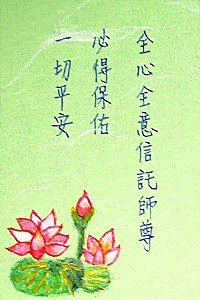 全心全意信託師尊
必得保佑
一切平安